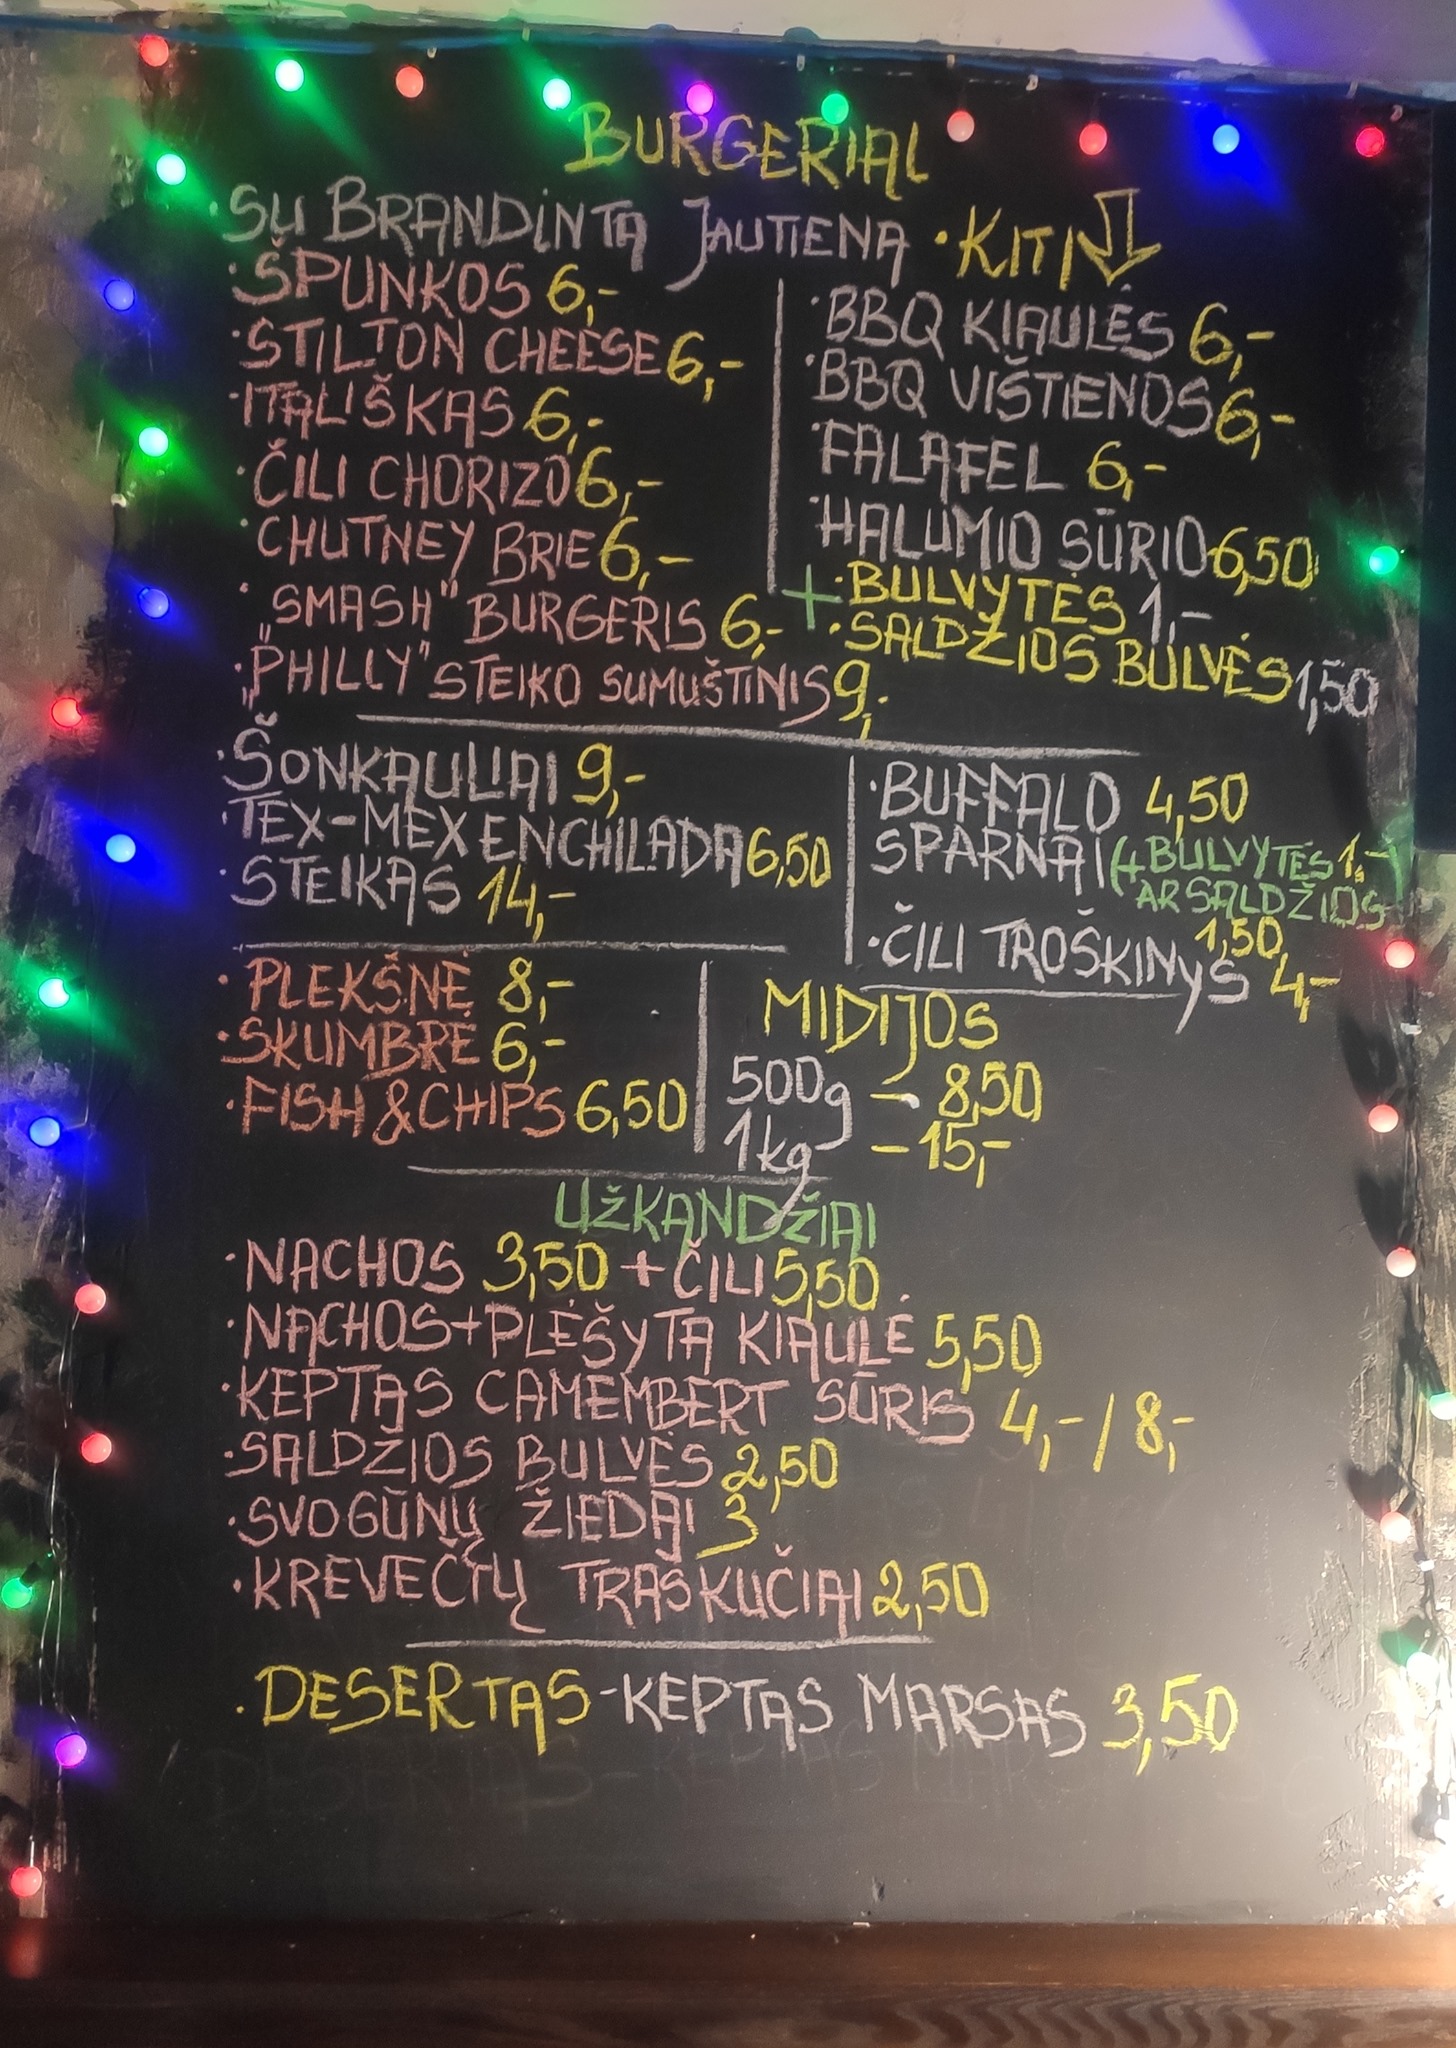 BURGERIAI
SU BRANDINTA JAUTIENA
· ŠPUNKOS 6,-
· STILTON CHEESE 6,-
· ITALIŠKAS 6,-
· ČILI CHORIZO 6,-
· CHUTNEY BRIE 6,-
· „SMASH" BURGERIS 6,-
· „PHILLY" STEIKO SUMUŠTINIS 9,-
· KITI
· BBQ KIAULĖS 6,-
· BBQ VIŠTIENOS 6,-
· FALAFEL 6,-
· HALUMIO SŪRIO 6,50
+ · BULVYTĖS 1,-
· SALDŽIOS BULVĖS 1,50
· ŠONKAULIAI 9,-
· TEX-MEX ENCHILADA 6,50
· STEIKAS 14,-
· BUFFALO 4,50
SPARNAI (+ BULVYTĖS 1,-
AR SALDŽIOS
1,50
· ČILI TROŠKINYS 4,-
· PLEKŠNĖ 8,-
· SKUMBRĖ 6,-
· FISH & CHIPS 6,50
MIDIJOS
500g - 8,50
1kg - 15,-
UŽKANDŽIAI
· NACHOS 3,50 + ČILI 5,50
· NACHOS + PLĖŠYTA KIAULĖ 5,50
· KEPTAS CAMEMBERT SŪRIS 4,- / 8,-
· SALDŽIOS BULVĖS 2,50
· SVOGŪNŲ ŽIEDAI 3
· KREVEČIŲ TRAŠKUČIAI 2,50
· DESERTAS - KEPTAS MARSAS 3,50